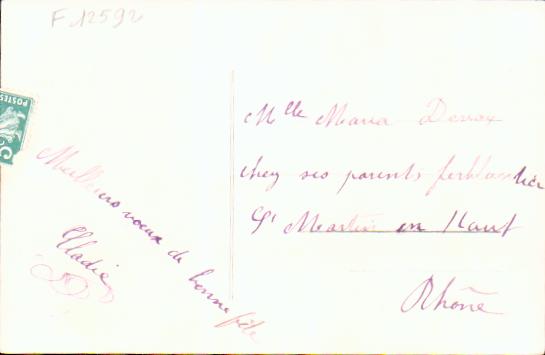 F 12592
POSTES
5
Meilleurs voeux de bonne fête
Mlle Maria
chez ses parents ferblantier
St Martin en Haut
Rhône